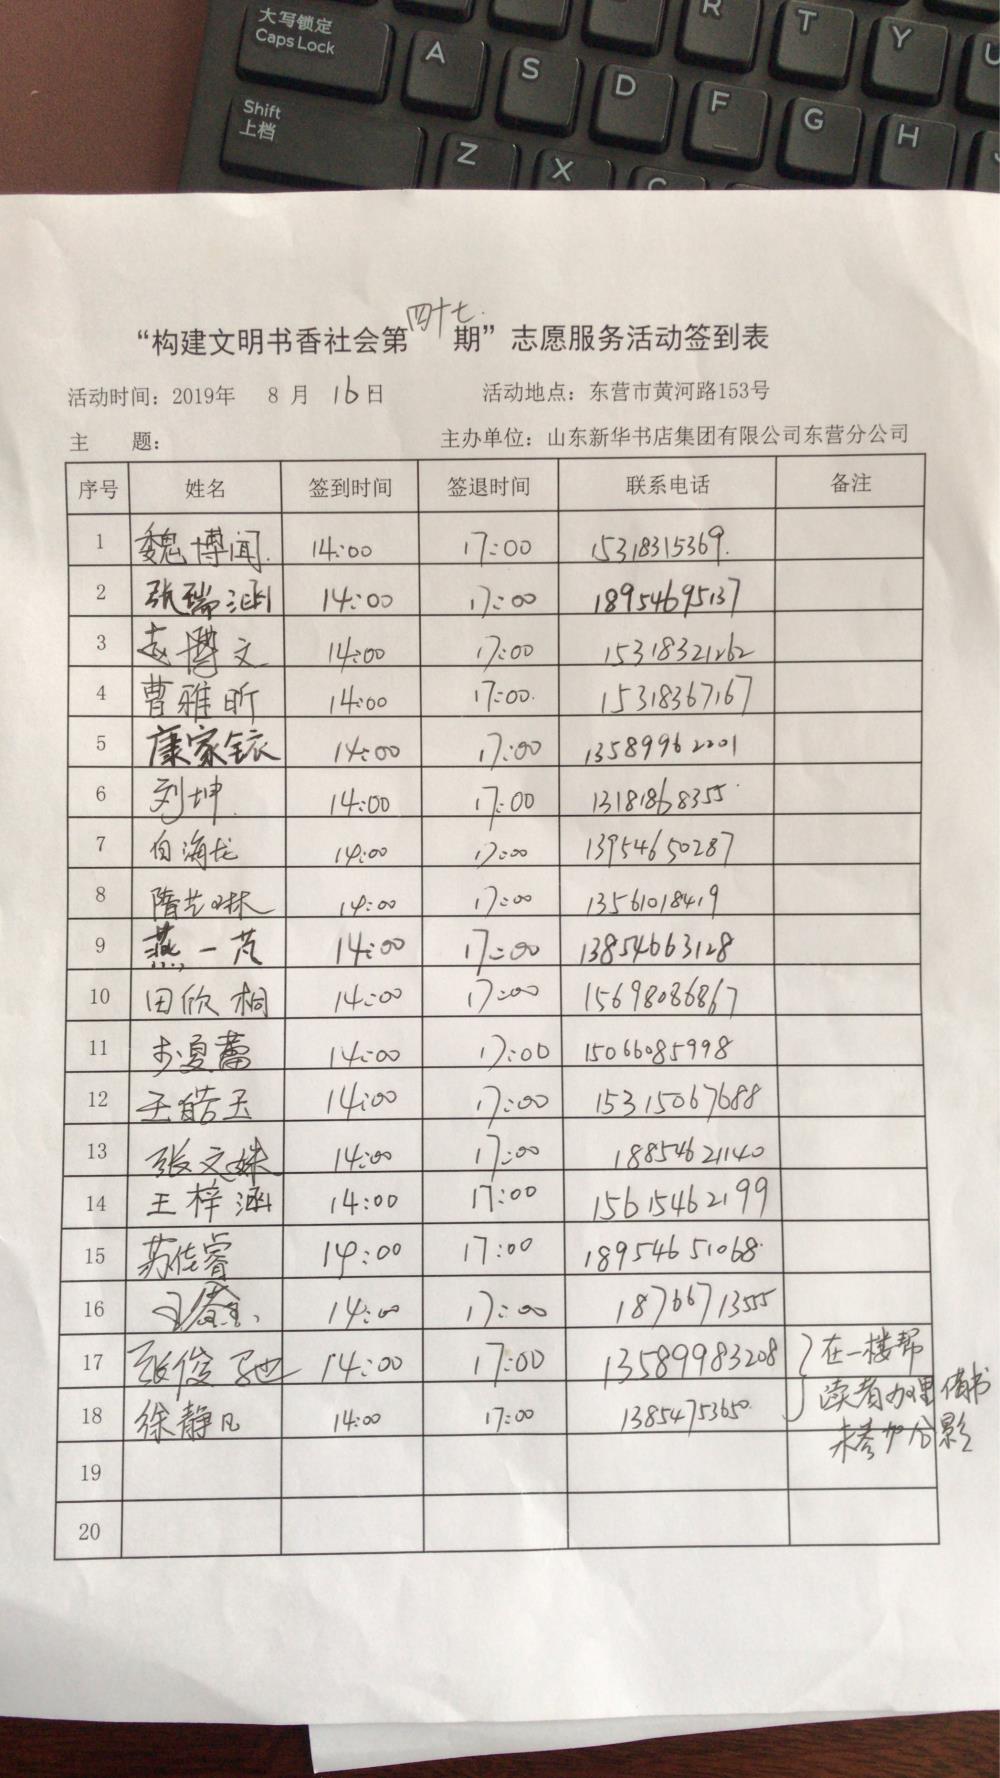 大写锁定
Caps Lock
A S D F G H
R T Y U
Shift
上档
Z X C
“构建文明书香社会第四十七期”志愿服务活动签到表
活动时间：2019年 8 月 16日 活动地点：东营市黄河路153号
主 题： 主办单位：山东新华书店集团有限公司东营分公司
序号 姓名 签到时间 签退时间 联系电话 备注
1 魏博闻 14:00 17:00 15318315369
2 张瑞涵 14:00 17:00 18954695137
3 赵博文 14:00 17:00 15318321262
4 曹雅昕 14:00 17:00 15318367167
5 康家铱 14:00 17:00 13589962201
6 刘坤 14:00 17:00 13181868355
7 白海龙 14:00 17:00 13954650287
8 隋艺琳 14:00 17:00 13561018419
9 燕一芃 14:00 17:00 13854663128
10 田欣桐 14:00 17:00 15698086867
11 步夏蕾 14:00 17:00 15066085998
12 王皓玉 14:00 17:00 15315067688
13 张文姝 14:00 17:00 18854621140
14 王梓涵 14:00 17:00 15615462199
15 苏佳睿 14:00 17:00 18954651068
16 14:00 17:00 18766713555
17 张俊驰 14:00 17:00 13589983208 在一楼帮
18 徐静凡 14:00 17:00 13854753650 读者办理借书
未参加合影
19
20